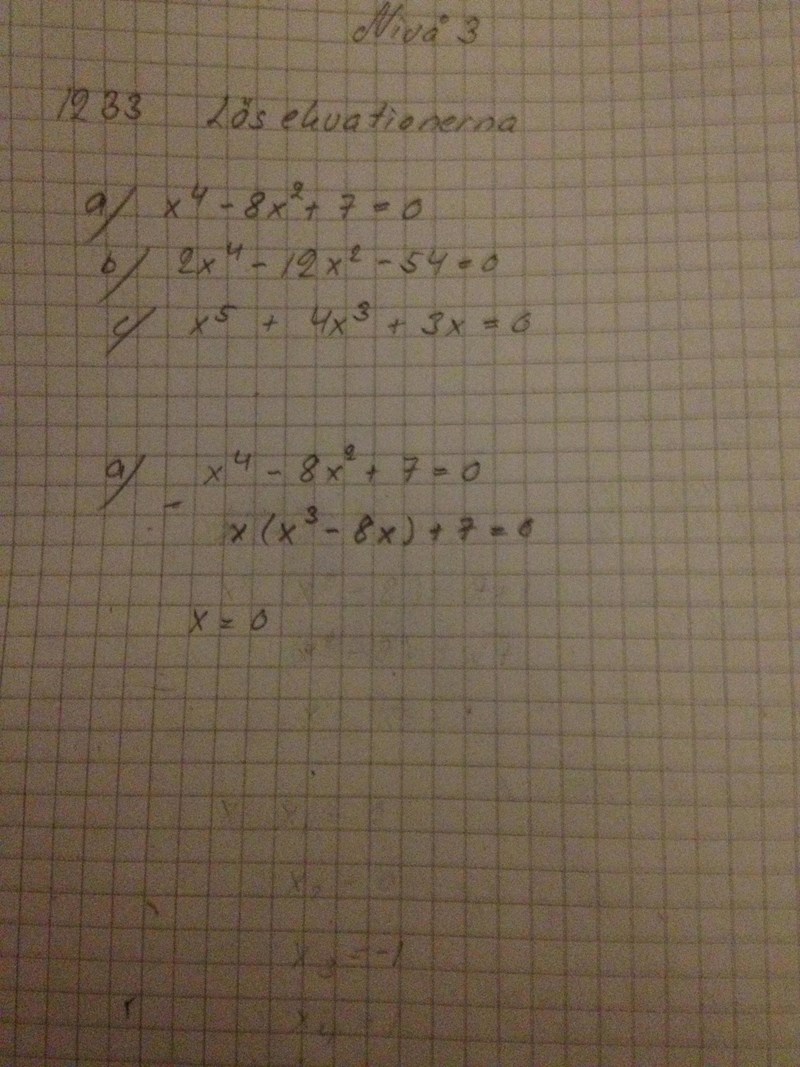 Nivå 3
1233 Lös ekvationerna
a) x⁴ - 8x² + 7 = 0
b) 2x⁴ - 12x² - 54 = 0
c) x⁵ + 4x³ + 3x = 0
a) x⁴ - 8x² + 7 = 0
x(x³ - 8x) + 7 = 0
x = 0
x₃ = -1